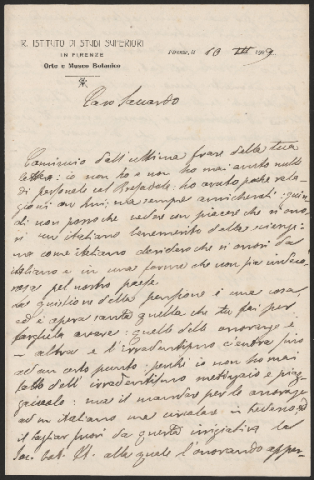 R. ISTITUTO DI STUDI SUPERIORI
IN FIRENZE
Orto e Museo Botanico
Firenze, li 10 XII 1909
Caro Saccardo
Comincio dall'ultima frase della tua
lettera: io non ho e non ho mai avuto nulla
di personale col ho avuto poche rela-
zioni con lui, ma sempre amichevoli: quin-
di non posso che vedere con piacere che si ono-
ri un italiano benemerito della scienza
ma come italiano desidero che si onori da
italiano e in una forma che non sia indeco-
rosa pel nostro paese.
La questione della pensione è una cosa,
ed è opera santa quella che tu fai per
fargliela avere: quella delle onoranze è
altra e l'irredentismo c'entra fino
ad un certo punto: perchè io non ho mai
fatto dell'irredentismo e piaz-
zaiuolo: ma il mandare per le onoranze
ad un italiano una circolare in tedesco, ed
il tagliar fuori da questa iniziativa la
Soc. bot. It. alla quale l'onorando appar-